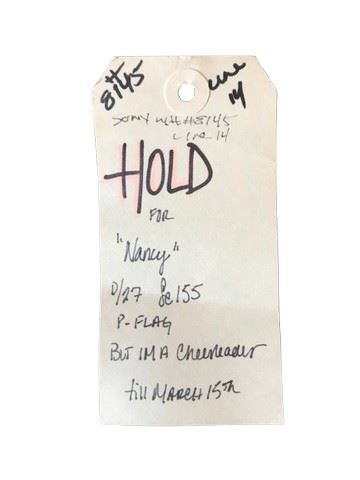 #
8145
Line
14
HOLD
FOR
"Nancy"
D/27 Sc155
P-FLAG
But IM A Cheerleader
till MARCH 15TH